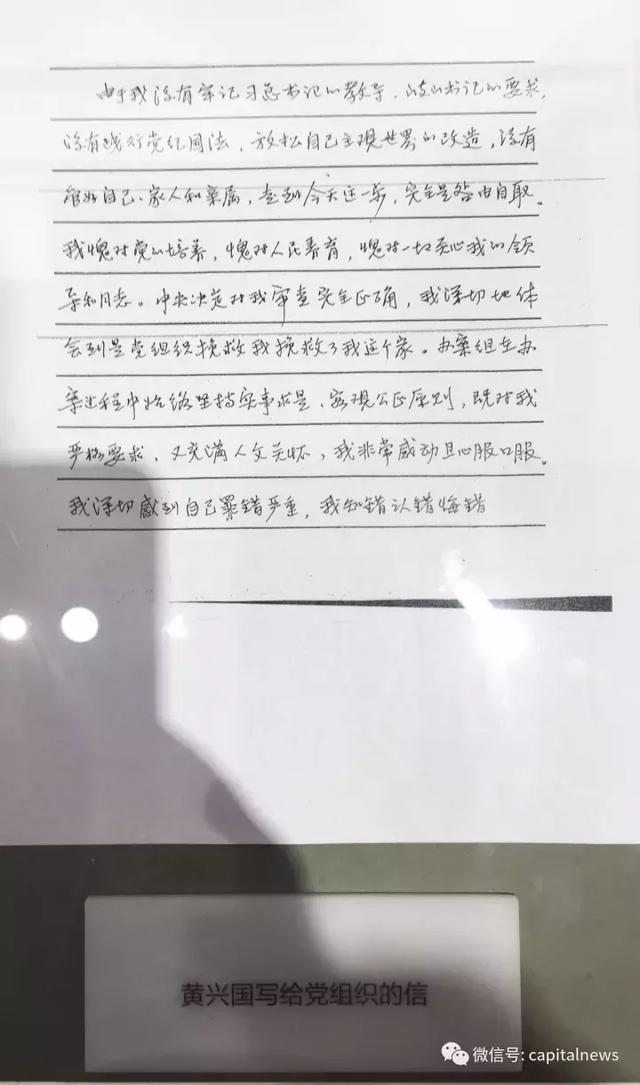 由于我没有牢记习总书记的教导、岐山书记的要求,
没有践行党纪国法，放松自己主观世界的改造，没有
管好自己、家人和亲属，走到今天这一步，完全是咎由自取。
我愧对党的培养，愧对人民养育，愧对一切关心我的领
导和同志。中央决定对我审查完全正确，我深切地体
会到是党组织挽救我挽救了我这个家。办案组在办
案过程中始终坚持实事求是、客观公正原则，既对我
严格要求，又充满人文关怀，我非常感动且心服口服。
我深切感到自己罪错严重，我知错认错悔错
黄兴国写给党组织的信
微信号: capitalnews